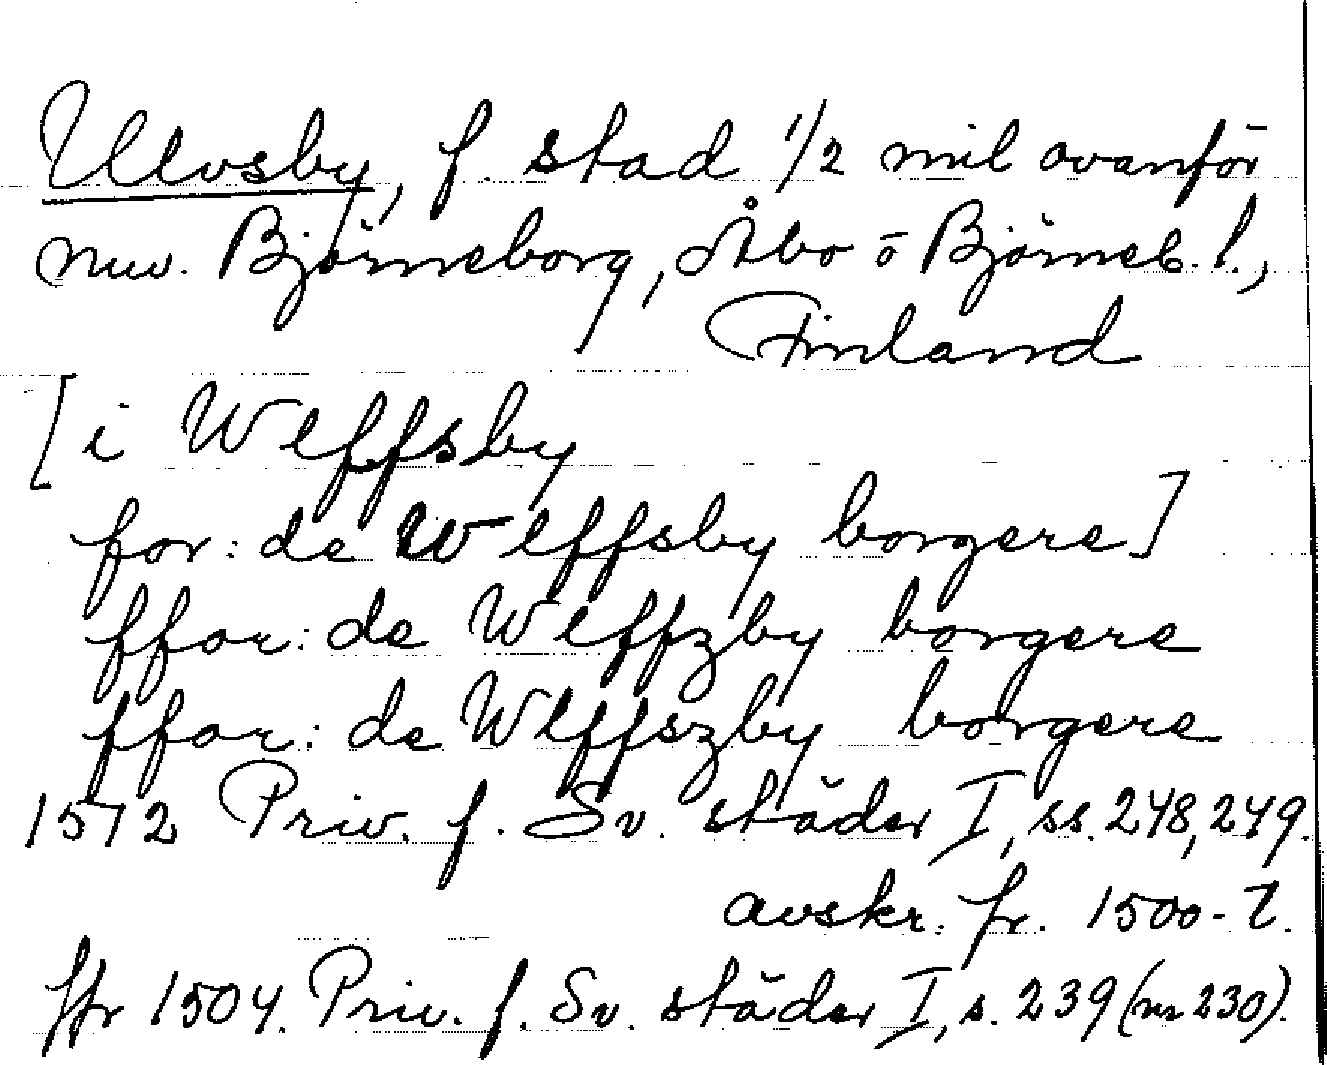 Ulvsby, f. stad 1/2 mil ovanför
nuv. Björneborg, Åbo o Björneb. l.,
Finland
[i Wlffsby
for: de Wlffsby borgere]
ffor: de Wlffzby borgere
ffor: de Wlffszby borgere
1512 Priv. f. Sv. städer I, ss. 248, 249.
avskr. fr. 1500-t.
jfr 1504. Priv. f. Sv. städer I, s. 239 (nr 230).